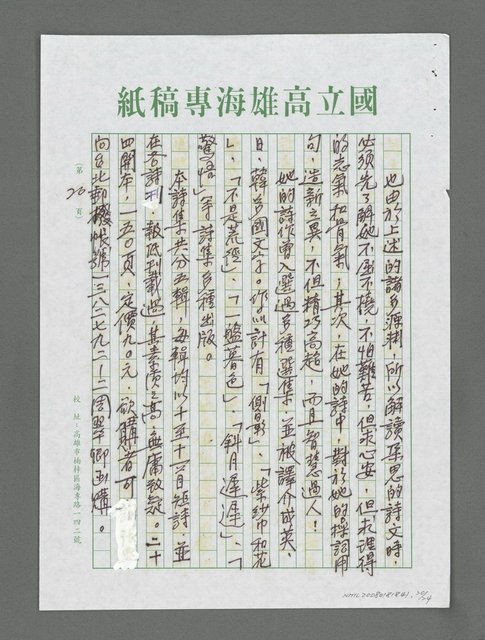 國立高雄海專稿紙
也由於上述的諸多源淵，所以解讀朵思的詩文時，
必須先了解她不屈不撓，不怕艱苦，但求心安，但求理得
的志氣和骨氣，其次，在她的詩中，對於她的操詞用
句，造新立異，不但精巧高超，而且智慧過人！
她的詩作曾入選過多種選集，並被譯介成英、
日、韓多國文字。作品計有「側影」、「紫紗巾和花
」、「不是荒徑」、「一盤暮色」、「斜月遲遲」、「
驚悟」等詩集多種出版。
本詩集共分五輯，每輯均以十至十一首短詩，並
在各詩刊、報紙刊載過，其素質之高，無庸致疑。二十
四開本，一五○頁，定價九○元，欲購者可
向台北郵撥帳號一三八二七九二一二周翠卿函購。
（第 23 頁）
校 址：高雄市楠梓區海專路一四二號
NMTL20080181841, 201/24